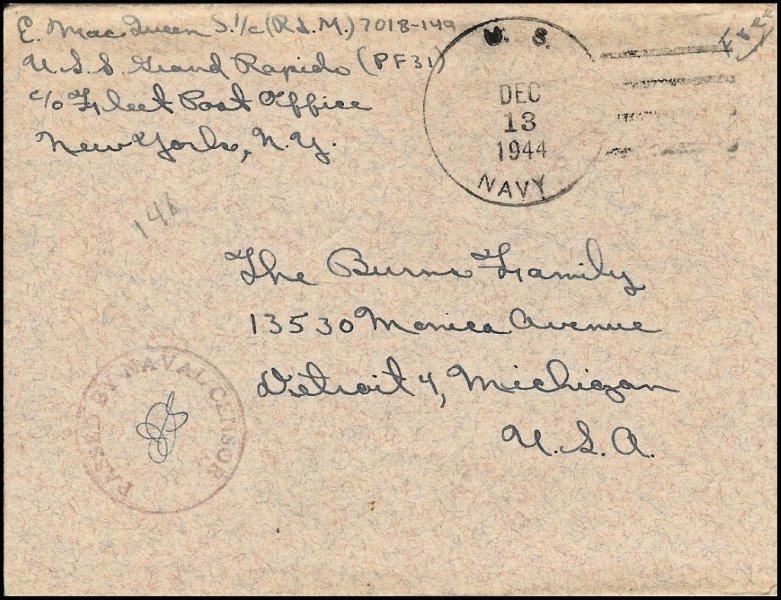 E. MacQueen S.1/c (R.d.M.) 7018-149
U.S.S. Grand Rapids (PF31)
c/o Fleet Post Office
New York, N.Y.
Free
U. S.
DEC
13
1944
NAVY
146
The Burns Family
13530 Monica Avenue
Detroit 4, Michigan
U.S.A.
PASSED BY NAVAL CENSOR